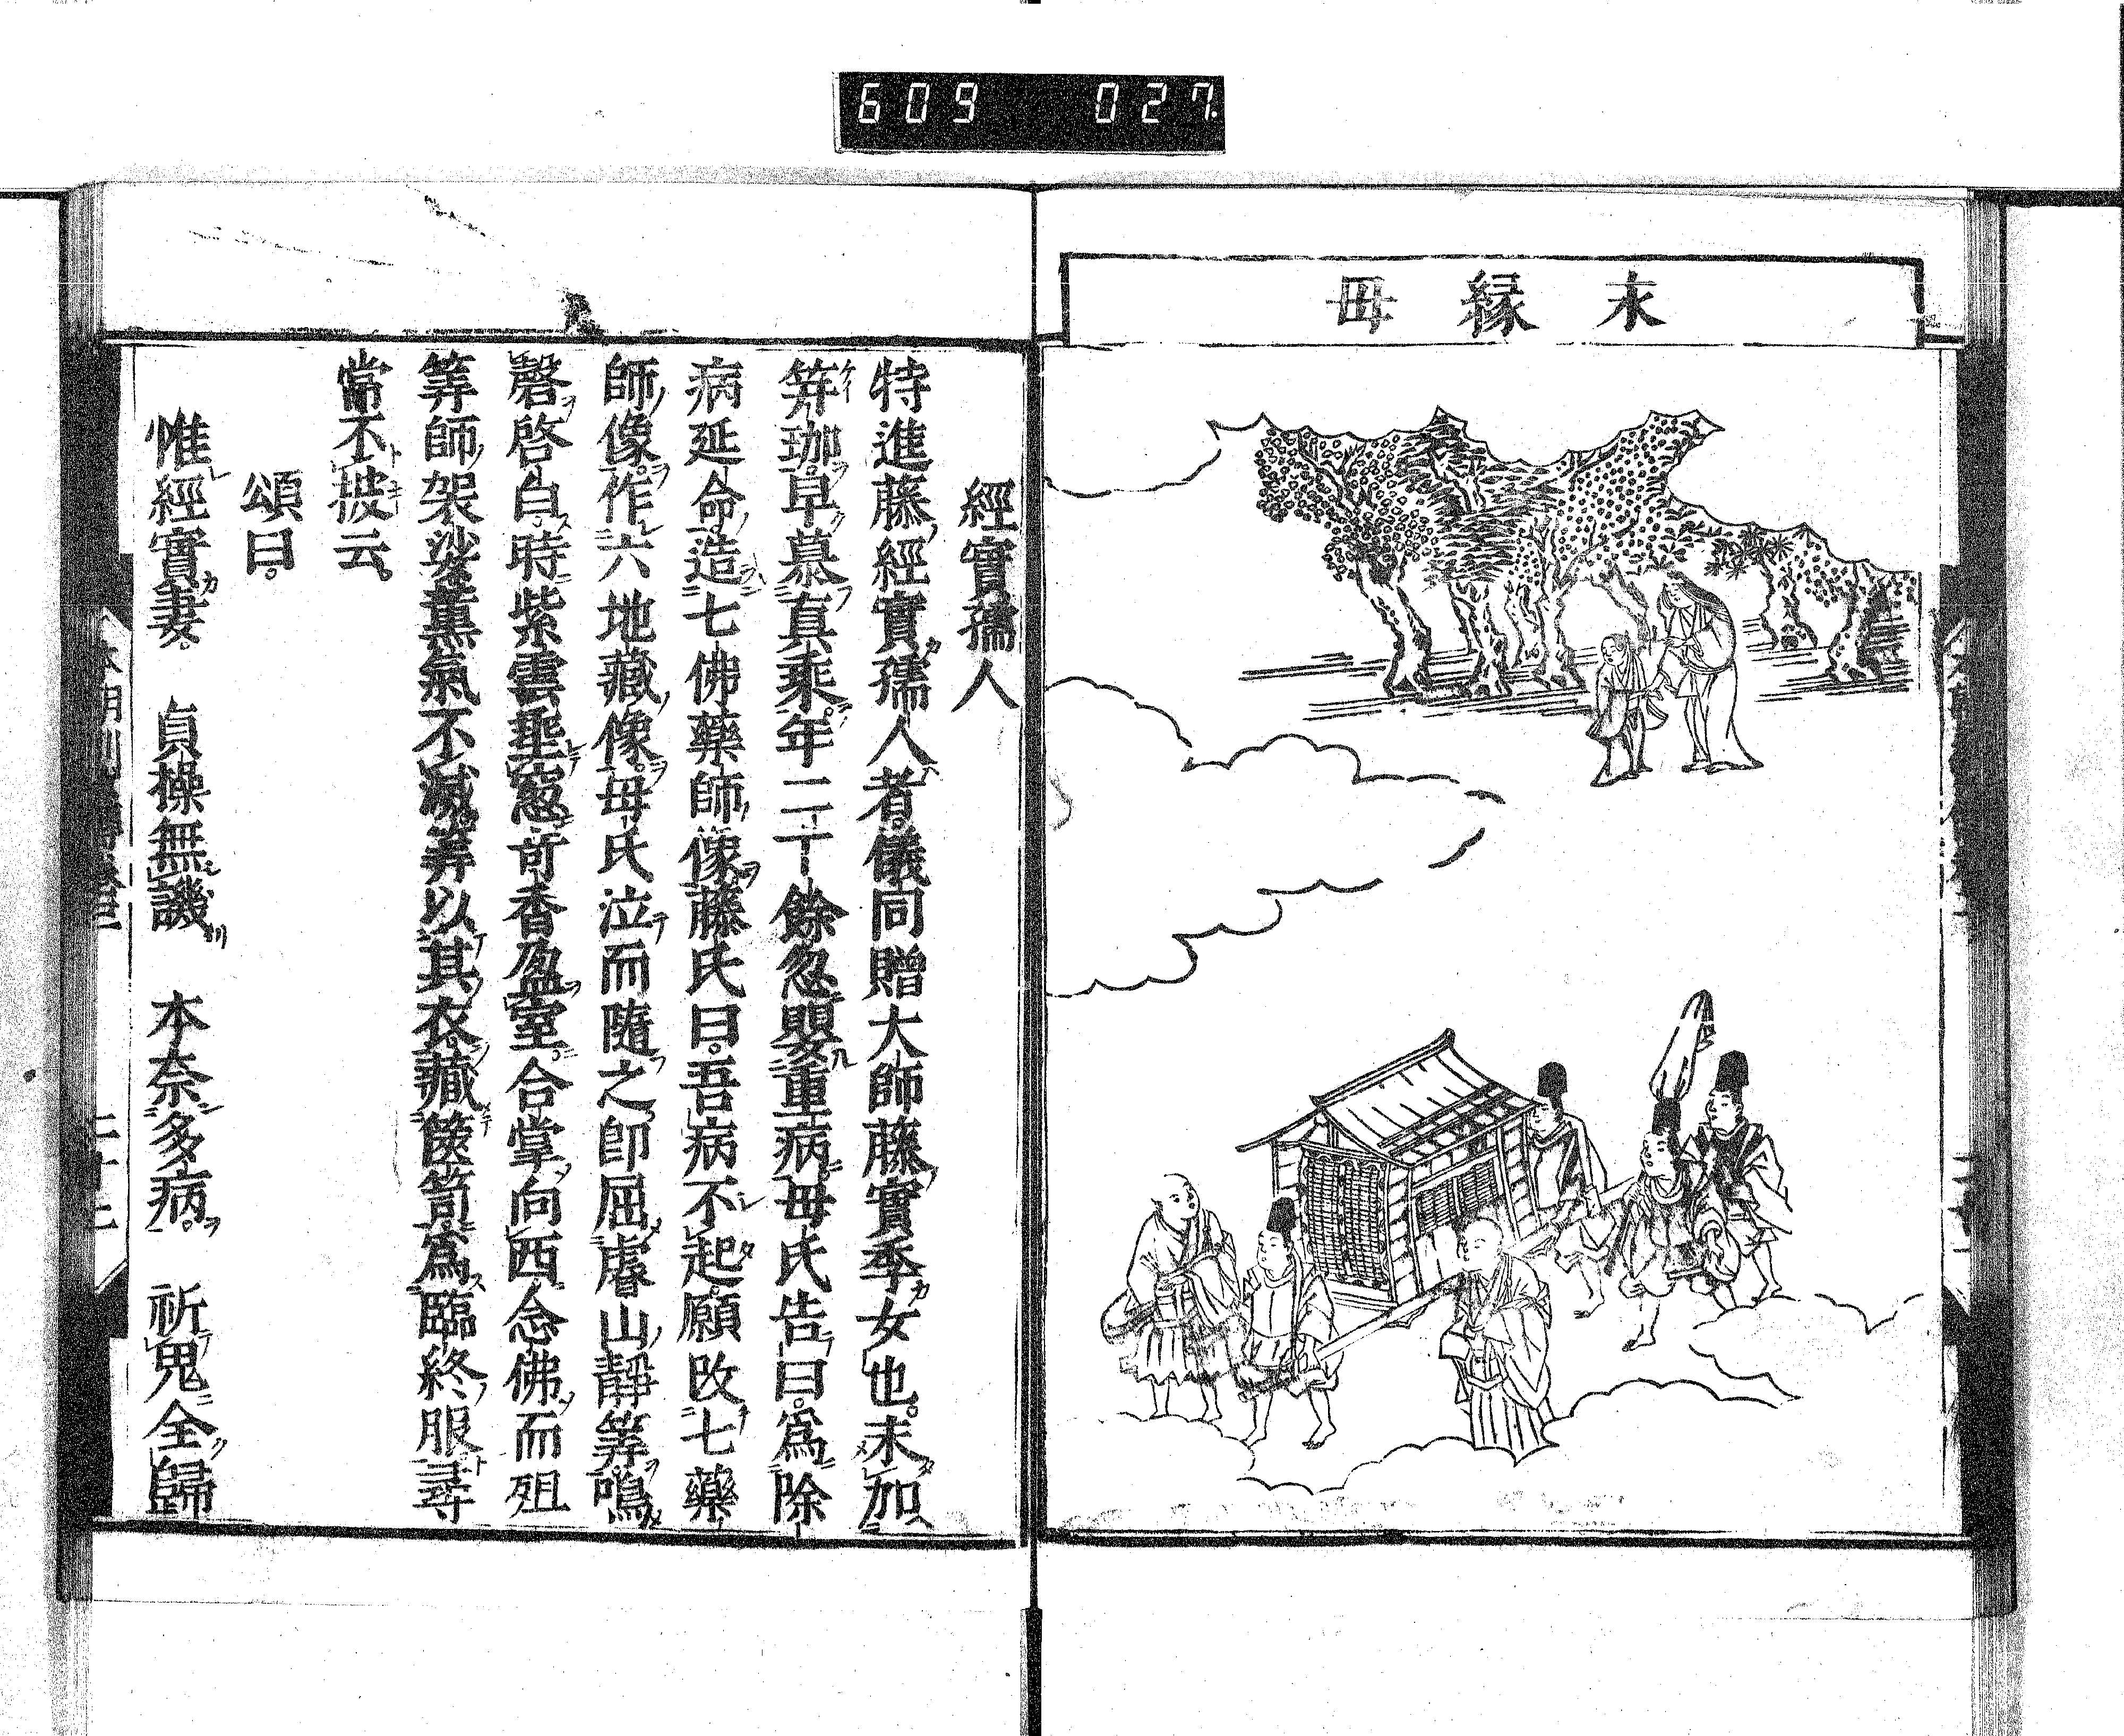 609 027
永縁母
經實孺人
特進藤經實孺人者儀同贈大師藤實季女也未加
笄珈早慕真乘年二十餘忽嬰重病母氏告曰爲除
病延命造七佛藥師像藤氏曰吾病不起願改七藥
師像作六地藏像母氏泣而隨之即屈睿山靜筭鳴
磬啓白時紫雲垂窓奇香盈室合掌向西念佛而殂
筭師袈裟薰氣不滅筭以其衣藏篋笥爲臨終服尋
常不披云
頌曰
惟經實妻 貞操無譏 本奈多病 祈鬼全歸